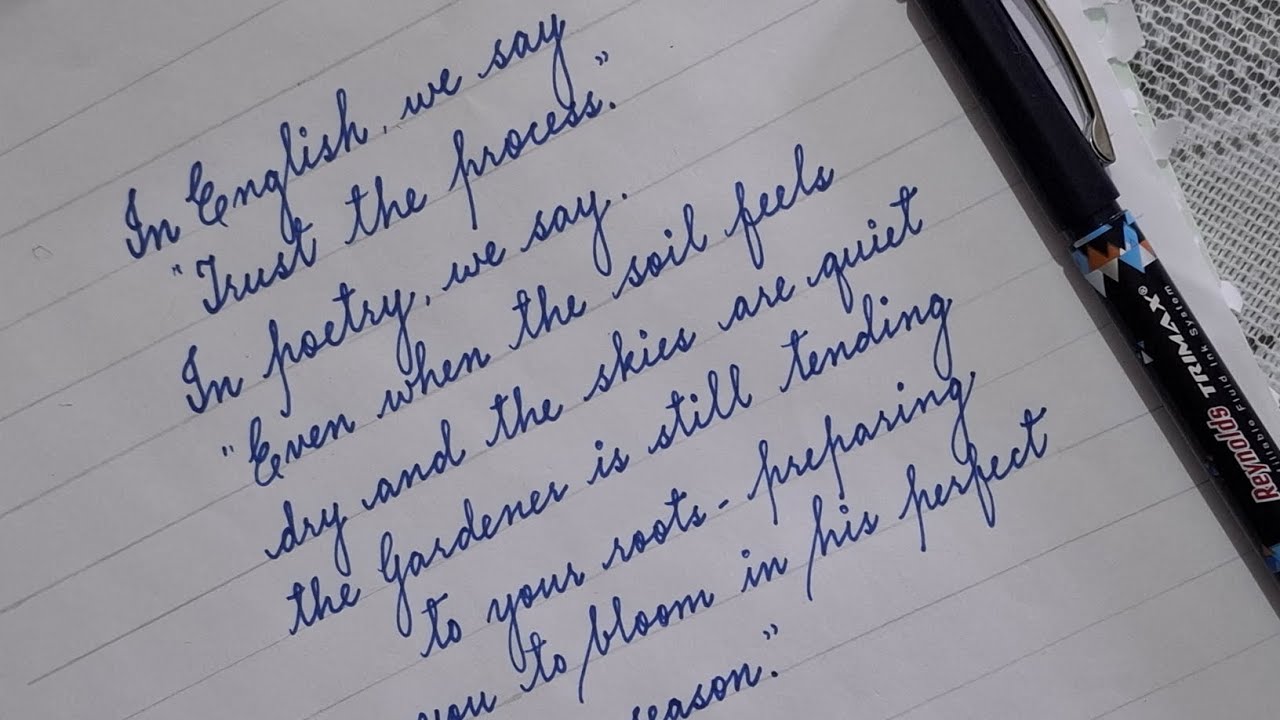 In English, we say
"Trust the process."
In poetry, we say.
"Even when the soil feels
dry and the skies are quiet
the Gardener is still tending
to your roots - preparing
you to bloom in his perfect
season."
Reynolds TRIMAX®
Fluid Ink System